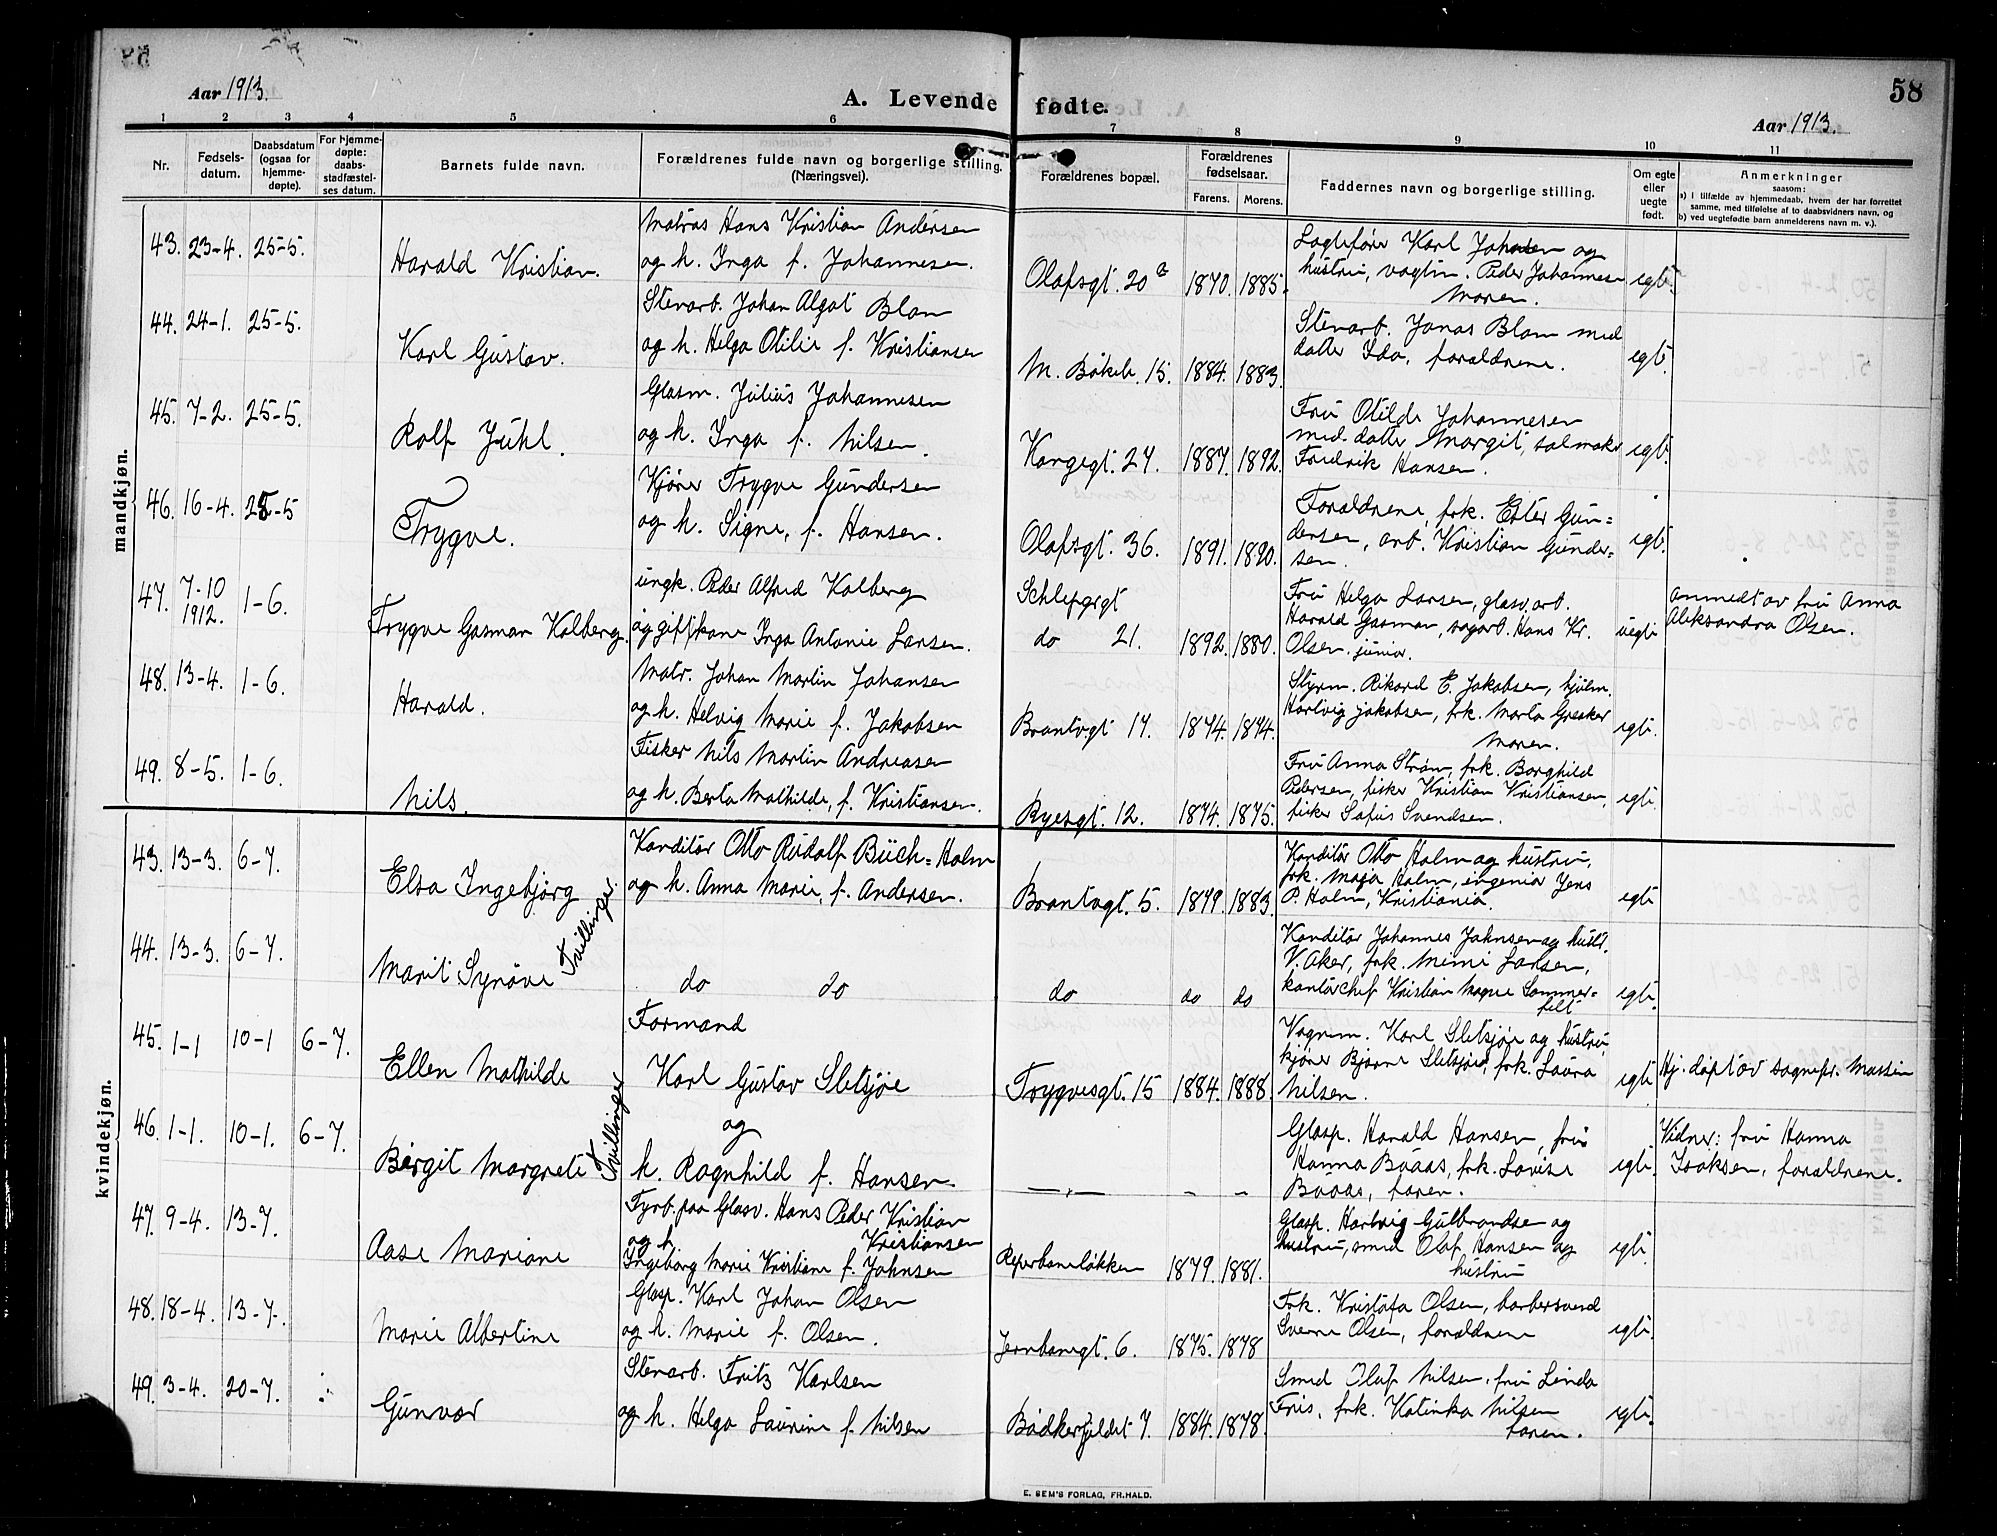 58
Aar 1913.
A. Levende fødte.
Aar 1913.
1 2 3 4 5 6 7 8 9 10 11
Nr.
Fødsels-
datum.
Daabsdatum
(ogsaa for
hjemme-
døpte).
For hjemme-
døpte:
daabs-
stadfæstel-
ses datum.
Barnets fulde navn.
Forældrenes fulde navn og borgerlige stilling.
(Næringsvei).
Forældrenes bopæl.
Forældrenes
fødselsaar.
Farens. Morens.
Faddernes navn og borgerlige stilling.
Om egte
eller
uegte
født.
Anmerkninger
saasom:
a) i tilfælde av hjemmedaab, hvem der har forrettet
samme, med tilføielse af to daabsvidners navn, og
b) ved uegtefødte barn anmelderens navn m. v.).
mandkjøn.
43. 23-4. 25-5.
Harald Kristian.
Matros Hans Kristian Andersen
og h. Inga f. Johannesen.
Olafsgt. 20 a 1870. 1885.
Karl Johnsen og
hustru, Peder Johannesen
Moren.
egte.
44. 24-1. 25-5.
Karl Gustav.
Stenarb. Johan Algot Blom
og h. Helga Otilie f. Kristiansen
M. Bøkele. 15. 1884. 1883.
Stenarb. Jonas Blom med
datter Ida, forældrene.
egte.
45. 7-2. 25-5.
Rolf Juhl.
Glasm. Julius Johannesen
og h. Inga f. Nilsen.
Kongegt. 24. 1887. 1892.
Fru Otilde Johannesen
med datter Margit, salmaker
Fredrik Hansen.
egte.
46. 16-4. 25-5
Trygve.
Kjører Trygve Gundersen
og h. Signe, f. Hansen.
Olafsgt. 36. 1891. 1890.
Forældrene, frk. Ester Gun=
dersen, arb. Kristian Gunder=
sen.
egte.
47. 7-10
1912. 1-6.
Trygve Gasman Kolberg.
ungk. Peder Alfred Kolberg
og gift kone Inga Antonie Larsen.
Schleppgrgt
do 21. 1892. 1880.
Fru Helga Larsen, glasv. arb.
Harald Gasman, sagarb. Hans Kr.
Olsen. junior.
uegte
anmeldt av fru Anna
Aleksandra Olsen.
48. 13-4. 1-6.
Harald.
Matr. Johan Martin Johansen
og h. Helvig Marie f. Jakobsen
Brantvgt 17. 1874. 1874.
Styrm. Rikard E. Jakobsen, hjulm.
Hartvig Jakobsen, frk. Marta Greaker
Moren.
egte.
49. 8-5. 1-6.
Nils.
Fisker Nils Martin Andreasen
og h. Berta Mathilde, f. Kristiansen.
Ryesgt. 12. 1874. 1875.
Fru Anna Strøm, frk. Borghild
Pedersen, fisker Kristian Kristiansen,
fisker Sofus Svendsen.
egte.
kvindekjøn.
43. 13-3. 6-7.
Elsa Ingebjørg
Tvillinger.
Konditor Otto Rudolf Buch=Holm
og h. Anna Marie, f. Andersen.
Brantvgt. 5. 1879. 1883.
Konditor Otto Holm og hustru,
frk. Maja Holm, ingeniør Jens
P. Holm, Kristiania.
egte
44. 13-3. 6-7.
Marit Synøve
do do
do do do
Konditor Johannes Johnsen og hustr.
V. Aker, frk. Mimi Larsen,
kontorchef Kristian Magne Sommer=
felt
egte.
45. 1-1 10-1 6-7.
Ellen Mathilde
Tvillinger
Formand
Karl Gustav Sletsjøe
Tryggvesgt. 15 1884. 1888.
Vognm. Karl Sletsjøe og hustru
kjører Bjarne Sletsjøe, frk. Laura
Nilsen.
egte
Hj. døpt av sognepr. Massin
46. 1-1. 10-1. 6-7.
Birgit Margrete
og
h. Ragnhild f. Hansen.
— „ — - -
Glasp. Harald Hansen, fru
Hanna Braas, frk. Lovise
Braas, faren.
egte.
Vidner: fru Hanna
Isaksen, forældrene.
47. 9-4. 13-7.
Aase Mariane
Fyrb. paa Glasv. Hans Peder Kristian
Kristiansen
og h.
Ingeborg Marie Kristiane f. Johnsen
Reperbaneløkken 1879. 1881.
Glasp. Hartvig Gulbrandsen og
hustru, smed Olaf Hansen og
hustru
egte.
48. 18-4. 13-7.
Marie Albertine
Glasp. Karl Johan Olsen
og h. Marie f. Olsen.
Jernbanegt. 6. 1875. 1878
Frk. Kristofa Olsen, barbersvend
Sverre Olsen, forældrene
egte.
49. 3-4. 20-7.
Gunvor
Stenarb. Fritz Karlsen
og h. Helga Laurine f. Nilsen
Bødkerfjeldet 7. 1884. 1878.
Smed Olaf Nilsen, fru Linda
Friis, frk. Katinka Nilsen
faren.
egte.
E. SEM'S FORLAG, FR.HALD.